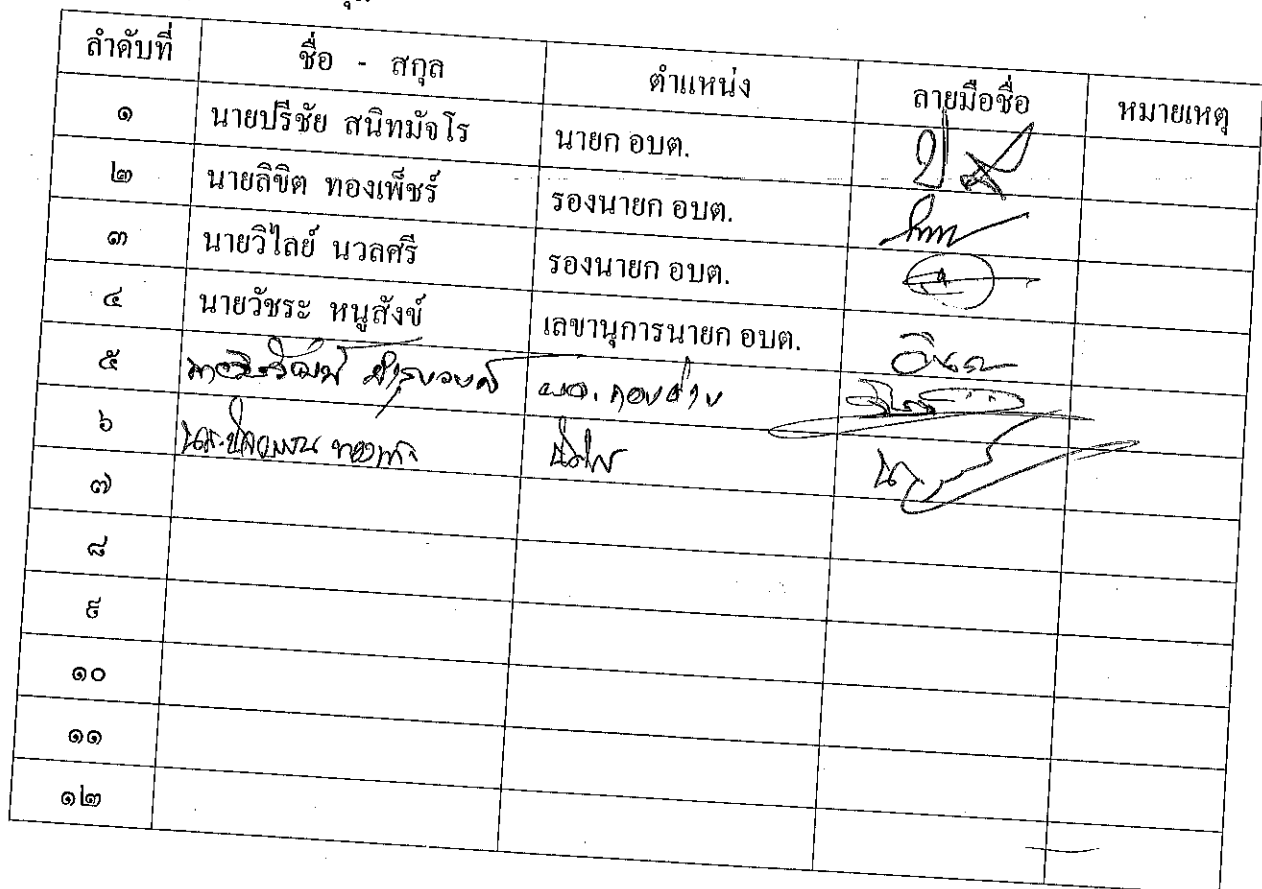 ลำดับที่ ชื่อ - สกุล ตำแหน่ง ลายมือชื่อ หมายเหตุ
๑ นายปรีชัย สนิทมัจโร นายก อบต.
๒ นายลิขิต ทองเพ็ชร์ รองนายก อบต.
๓ นายวิไลย์ นวลศรี รองนายก อบต.
๔ นายวัชระ หนูสังข์ เลขานุการนายก อบต.
๕ ผอ. กองช่าง
๖
๗
๘
๙
๑๐
๑๑
๑๒